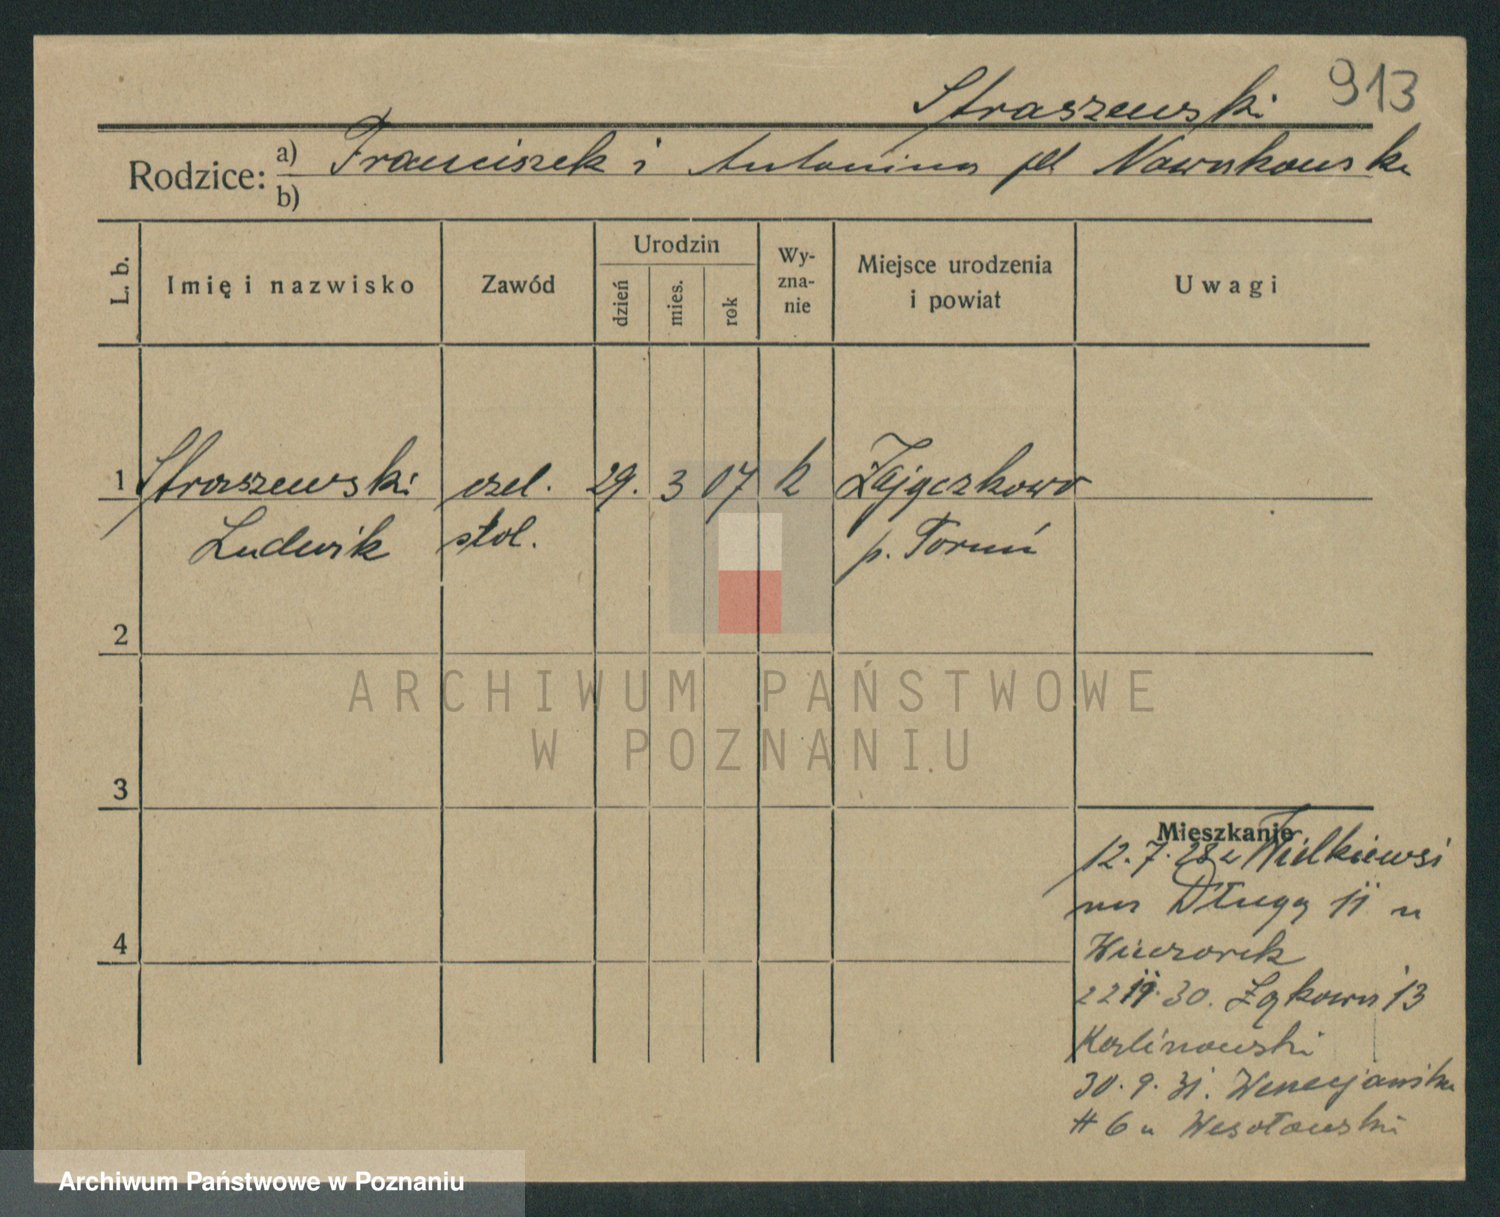 Straszewski 913
Rodzice: a) Franciszek i Antonina
b)
L. b.
Imię i nazwisko
Zawód
Urodzin
dzień
mies.
rok
Wy-
zna-
nie
Miejsce urodzenia
i powiat
Uwagi
1 Straszewski czel. 29. 3 07 k Zajączkowo
Ludwik stol. p. Toruń
2
ARCHIWUM PAŃSTWOWE
W POZNANIU
3
Mieszkanie
12. 7. 28 z Wielkiewsi
na Długą 11 u
Wieczorek
22 30. Łąkowa 13
Kalinowski
30. 9. 31. Wenecjańska
6 u Wesołowski
4
Archiwum Państwowe w Poznaniu